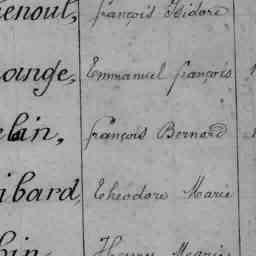 enout, françois Isidore
ange, Emmanuel françois
lin, françois Bernard
ibard, Theodore Marie